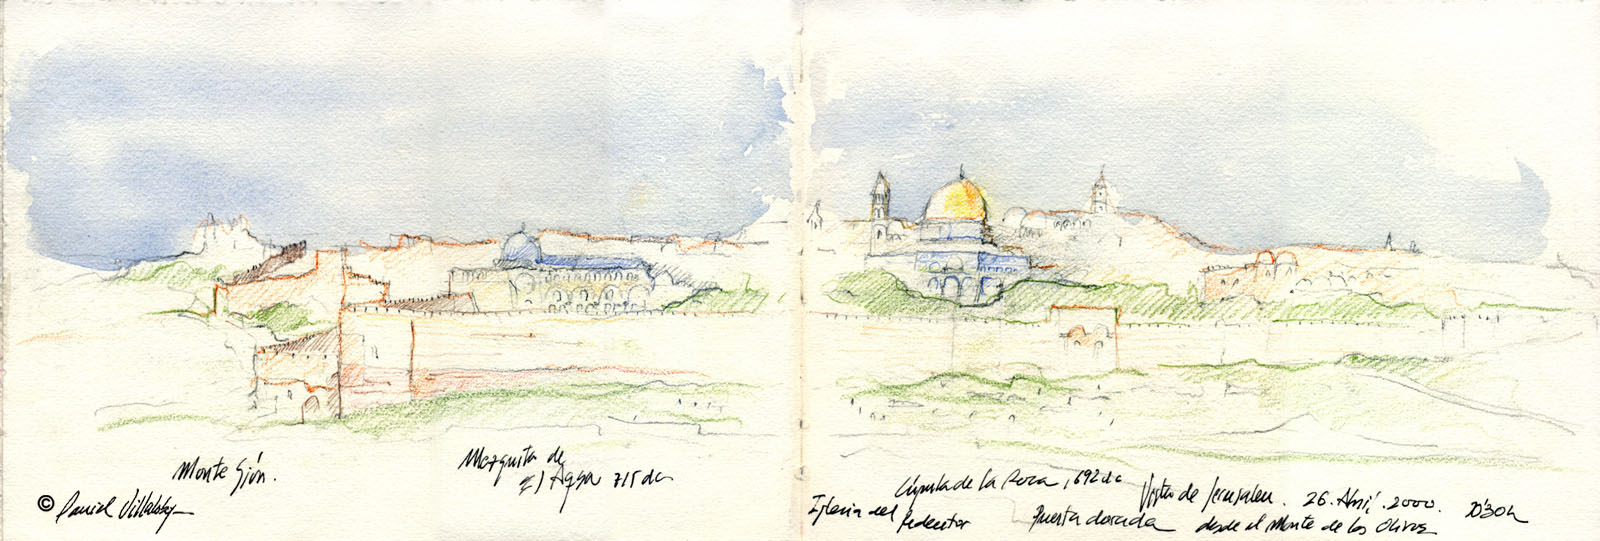 Monte Sión.
Mezquita de
el Aqsa 715 dc
© Daniel Villalobos
Cúpula de la Roca, 692 dc
Iglesia del
Redentor
Puerta dorada
Vista de Jerusalen. 26. Abril. 2000. 10'30h
desde el Monte de los Olivos